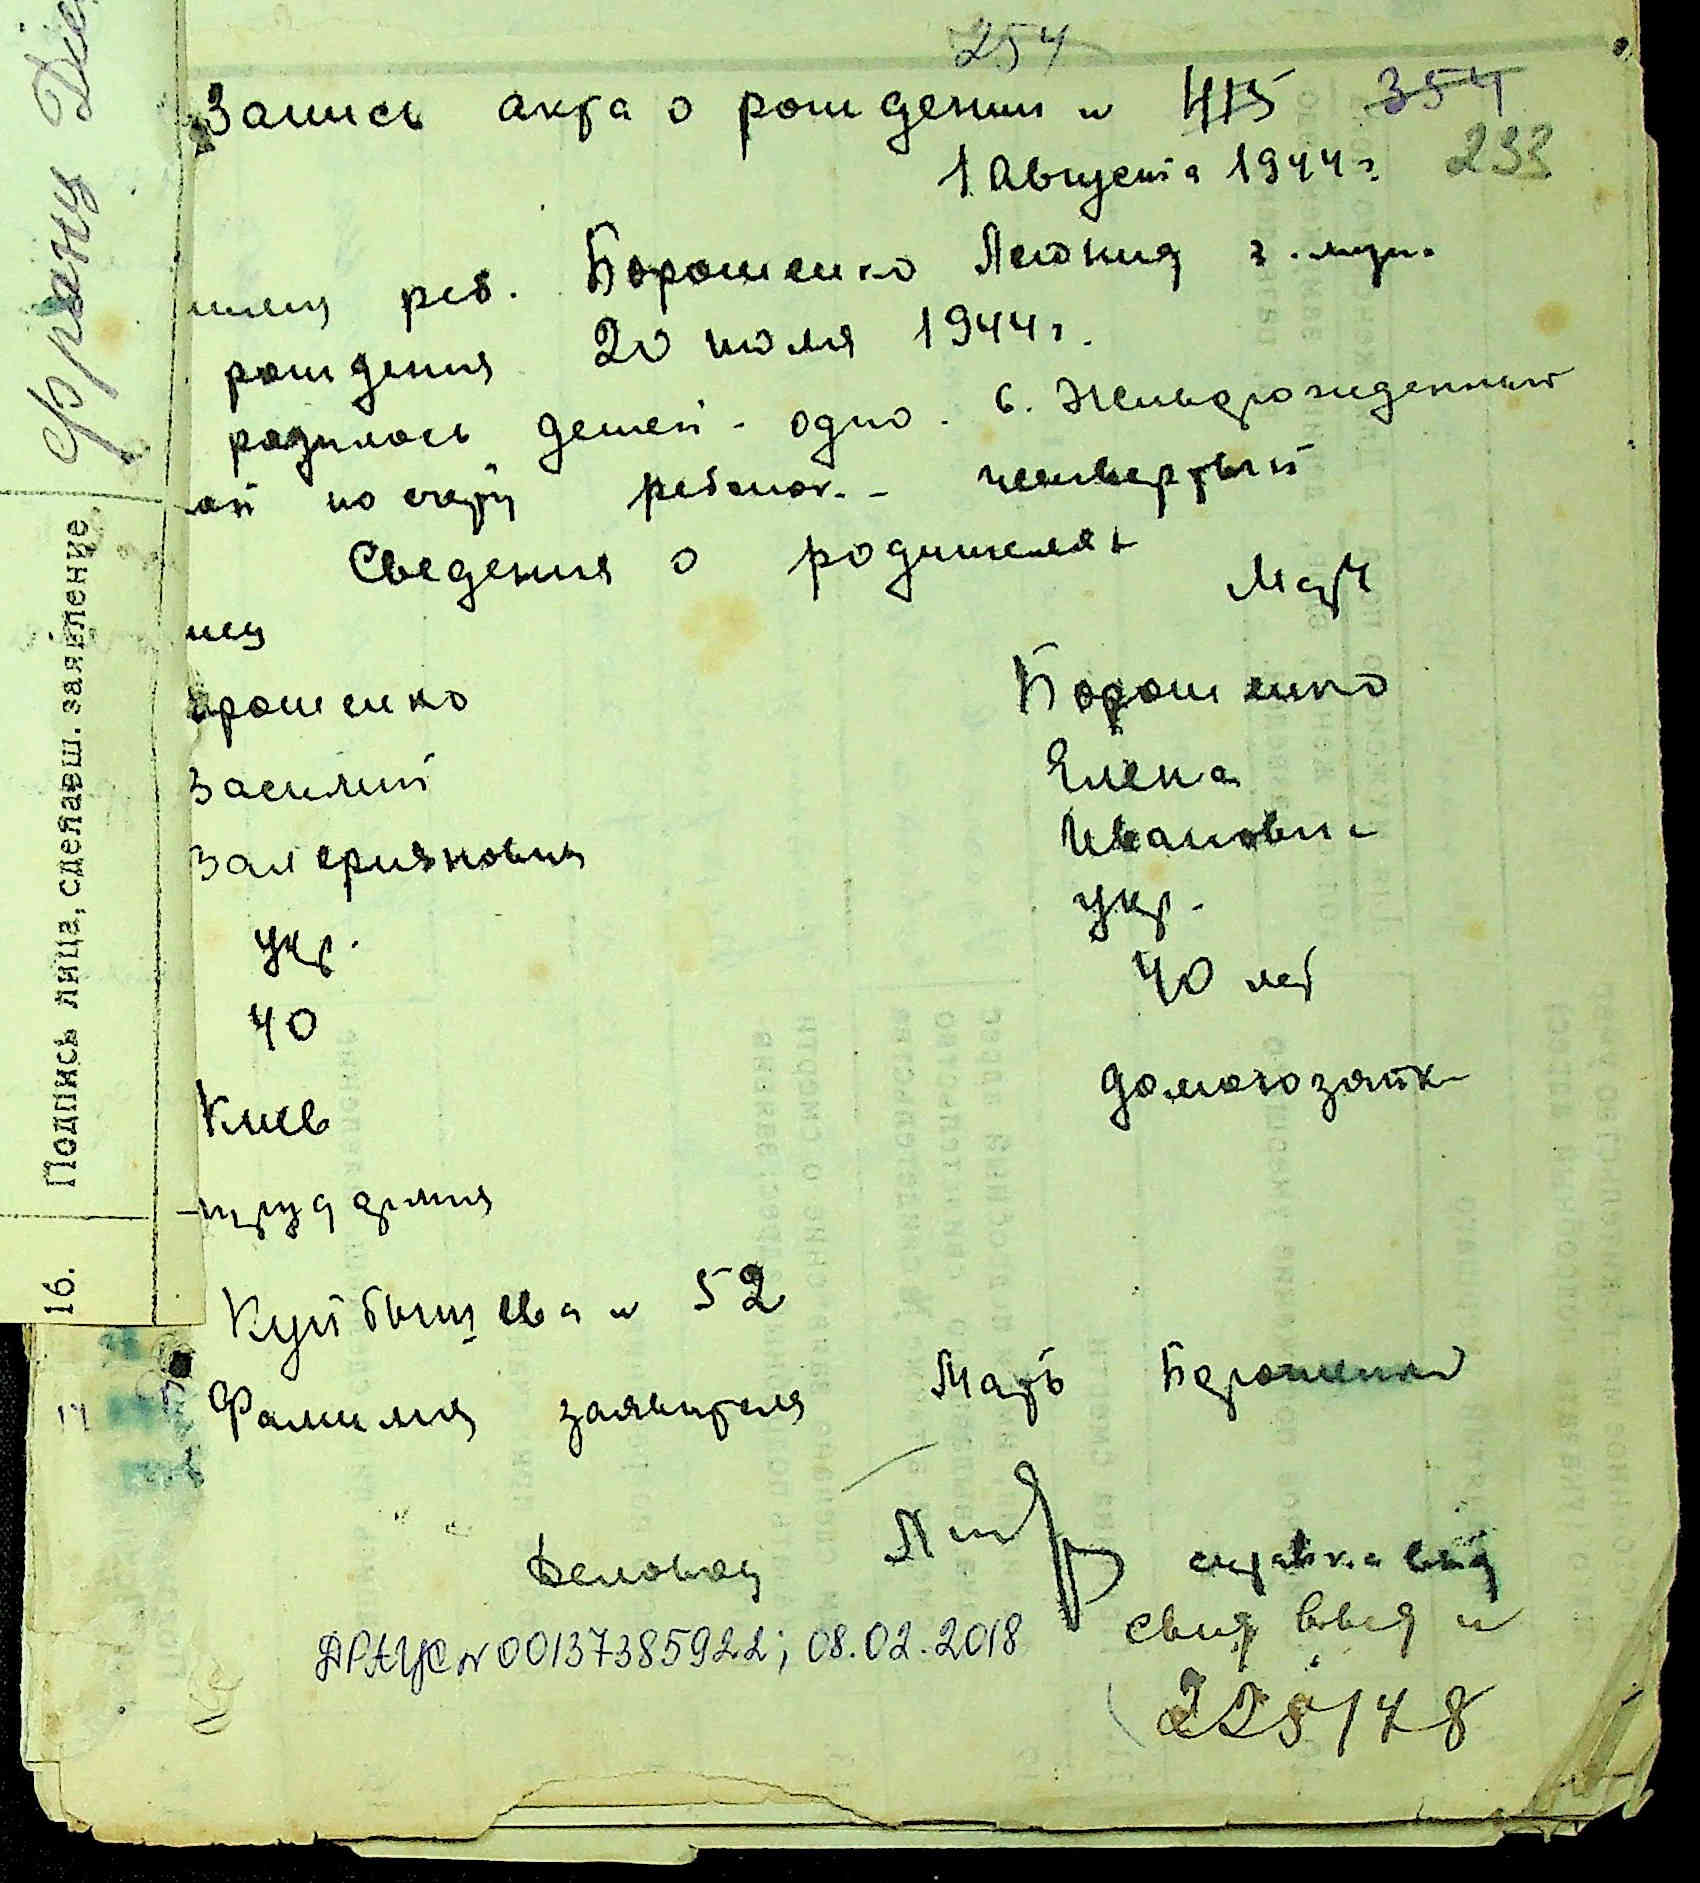 254
Запись акта о рождении № 415 354
1 Августа 1944 г. 233
реб. Борошенко Леонид 3. муж.
рождения 20 июля 1944 г.
родилось детей - одно. 6. Живорожденный
ой по счету ребенок - четвертый
Сведения о родителях
Мать
тец
орошенко Борошенко
Василий Елена
Валериянович Ивановна
укр. укр.
40 40 лет
Киев домохозяйк
труд армия
Куйбышева № 52
Фамилия заявителя Мать Борошенко
справка выд
ДРАЦС № 00137385922; 08.02.2018 свид выд №
225148
Франц
16. Подпись лица, сделавш. заявление
17